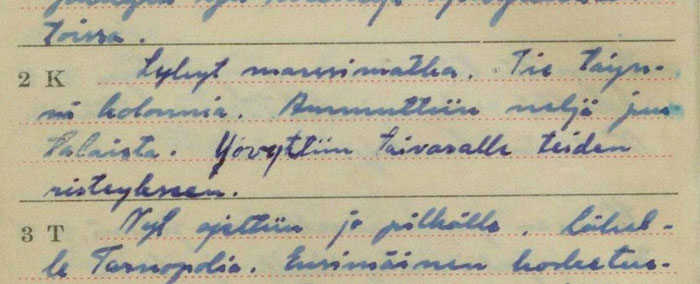 toissa.
2 K Lyhyt marssimatka. Tie täyn-
nä kolonnia. Ammuttiin neljä juu
talaista. Yövyttiin taivasalle teiden
risteykseen.
3 T Nyt ajettiin jo pitkälle. Lähel-
le Tarnopolia. Ensimäinen kosketus-